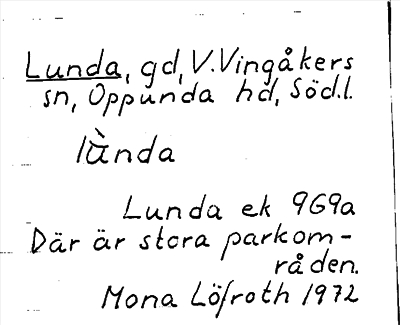 Lunda, gd, V. Vingåkers
sn, Oppunda hd, Söd.l.
lu̇̀nda
Lunda ek 9G9a
Där är stora parkom-
råden.
Mona Löfroth 1972